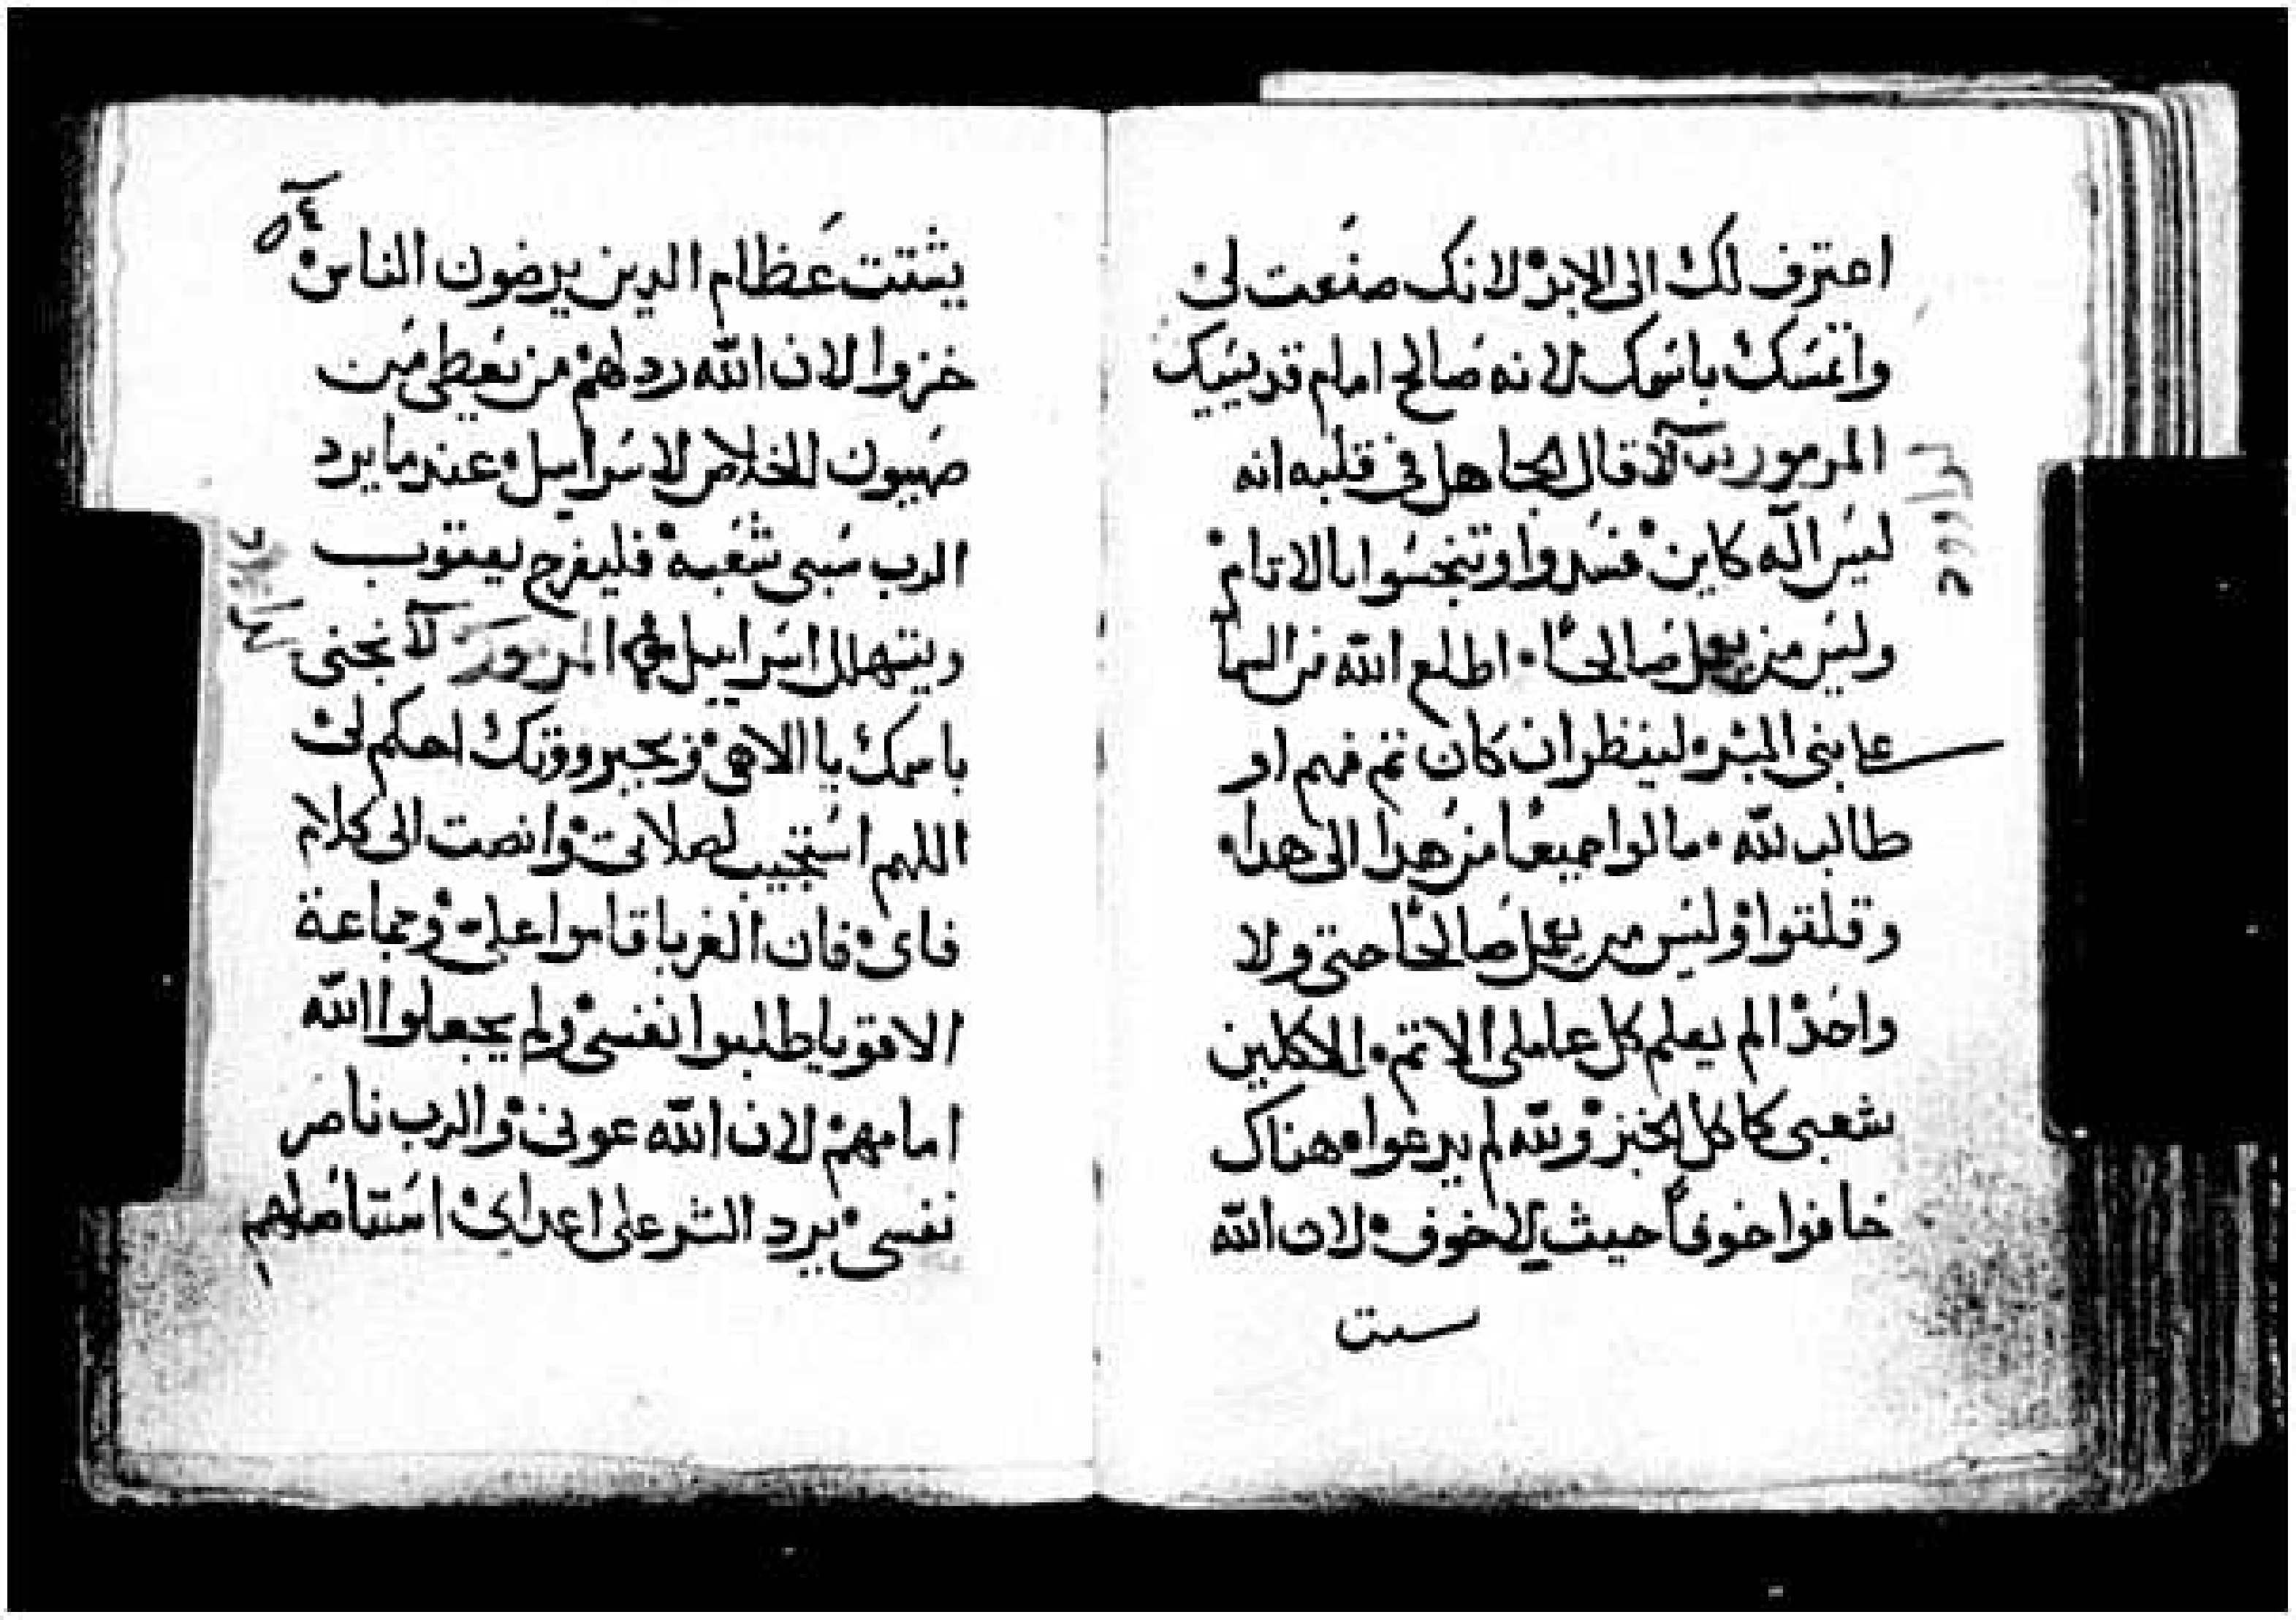 اعترف لك الى الابد لانك صنعت لى
واتمسك باسمك لانه صالح امام قديسيك
المزمور قال الجاهل فى قلبه انه
ليس اله كاين فسدوا وتنجسوا بالاتام
وليس من يعمل صالحًا اطلع الله من السما
على بنى البشر لينظر ان كان تم فهم او
طالب لله مالوا جميعًا من هدا الى هدا
وقلقوا وليس من يعمل صالحًا حتى ولا
واحد الم يعلم كل عاملى الاتم الاكلين
شعبى كاكل الخبز ولله لم يدعوا هناك
خافوا خوفًا حيث لا خوف لان الله
يشتت عظام الدين يرضون الناس
خزوا لان الله ردلهم من يعطى من
صهيون الخلاص لاسراييل عندما يرد
الرب سبى شعبه فليفرح يعقوب
ويتهلل اسراييل المزمور نجنى
باسمك يا الاهى وبجبروتك احكم لى
اللهم استجيب لصلاتى وانصت الى كلام
فاى فان الغربا قاموا على وجماعة
الاقويا طلبوا نفسى ولم يجعلوا الله
امامهم لان الله عونى والرب ناصر
نفسى يرد الشر على اعداى استاصلهم